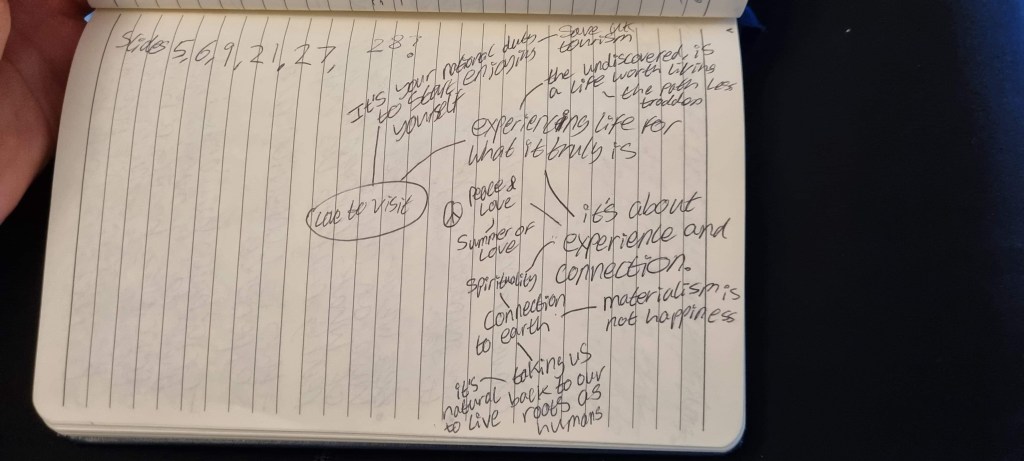 Slides 5, 6, 9, 21, 27, 28?
It's your national duty
to start enjoying
yourself
Save UK
tourism
the undiscovered, is
a life worth living
the path less
troddon
experiencing life for
what it truly is
Love to visit
Peace &
Love
Summer of
Love
it's about
experience and
connection.
Spirituality
connection
to earth
materialism is
not happiness
taking us
back to our
roots as
humans
it's
natural
to live